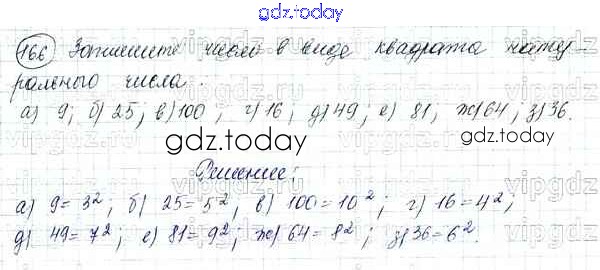 gdz.today
166 Запишите число в виде квадрата нату-
рального числа:
а) 9; б) 25; в) 100; г) 16; д) 49; е) 81; ж) 64; з) 36.
gdz.today
Решение:
а) 9 = 3²; б) 25 = 5²; в) 100 = 10²; г) 16 = 4²;
д) 49 = 7²; е) 81 = 9²; ж) 64 = 8²; з) 36 = 6².